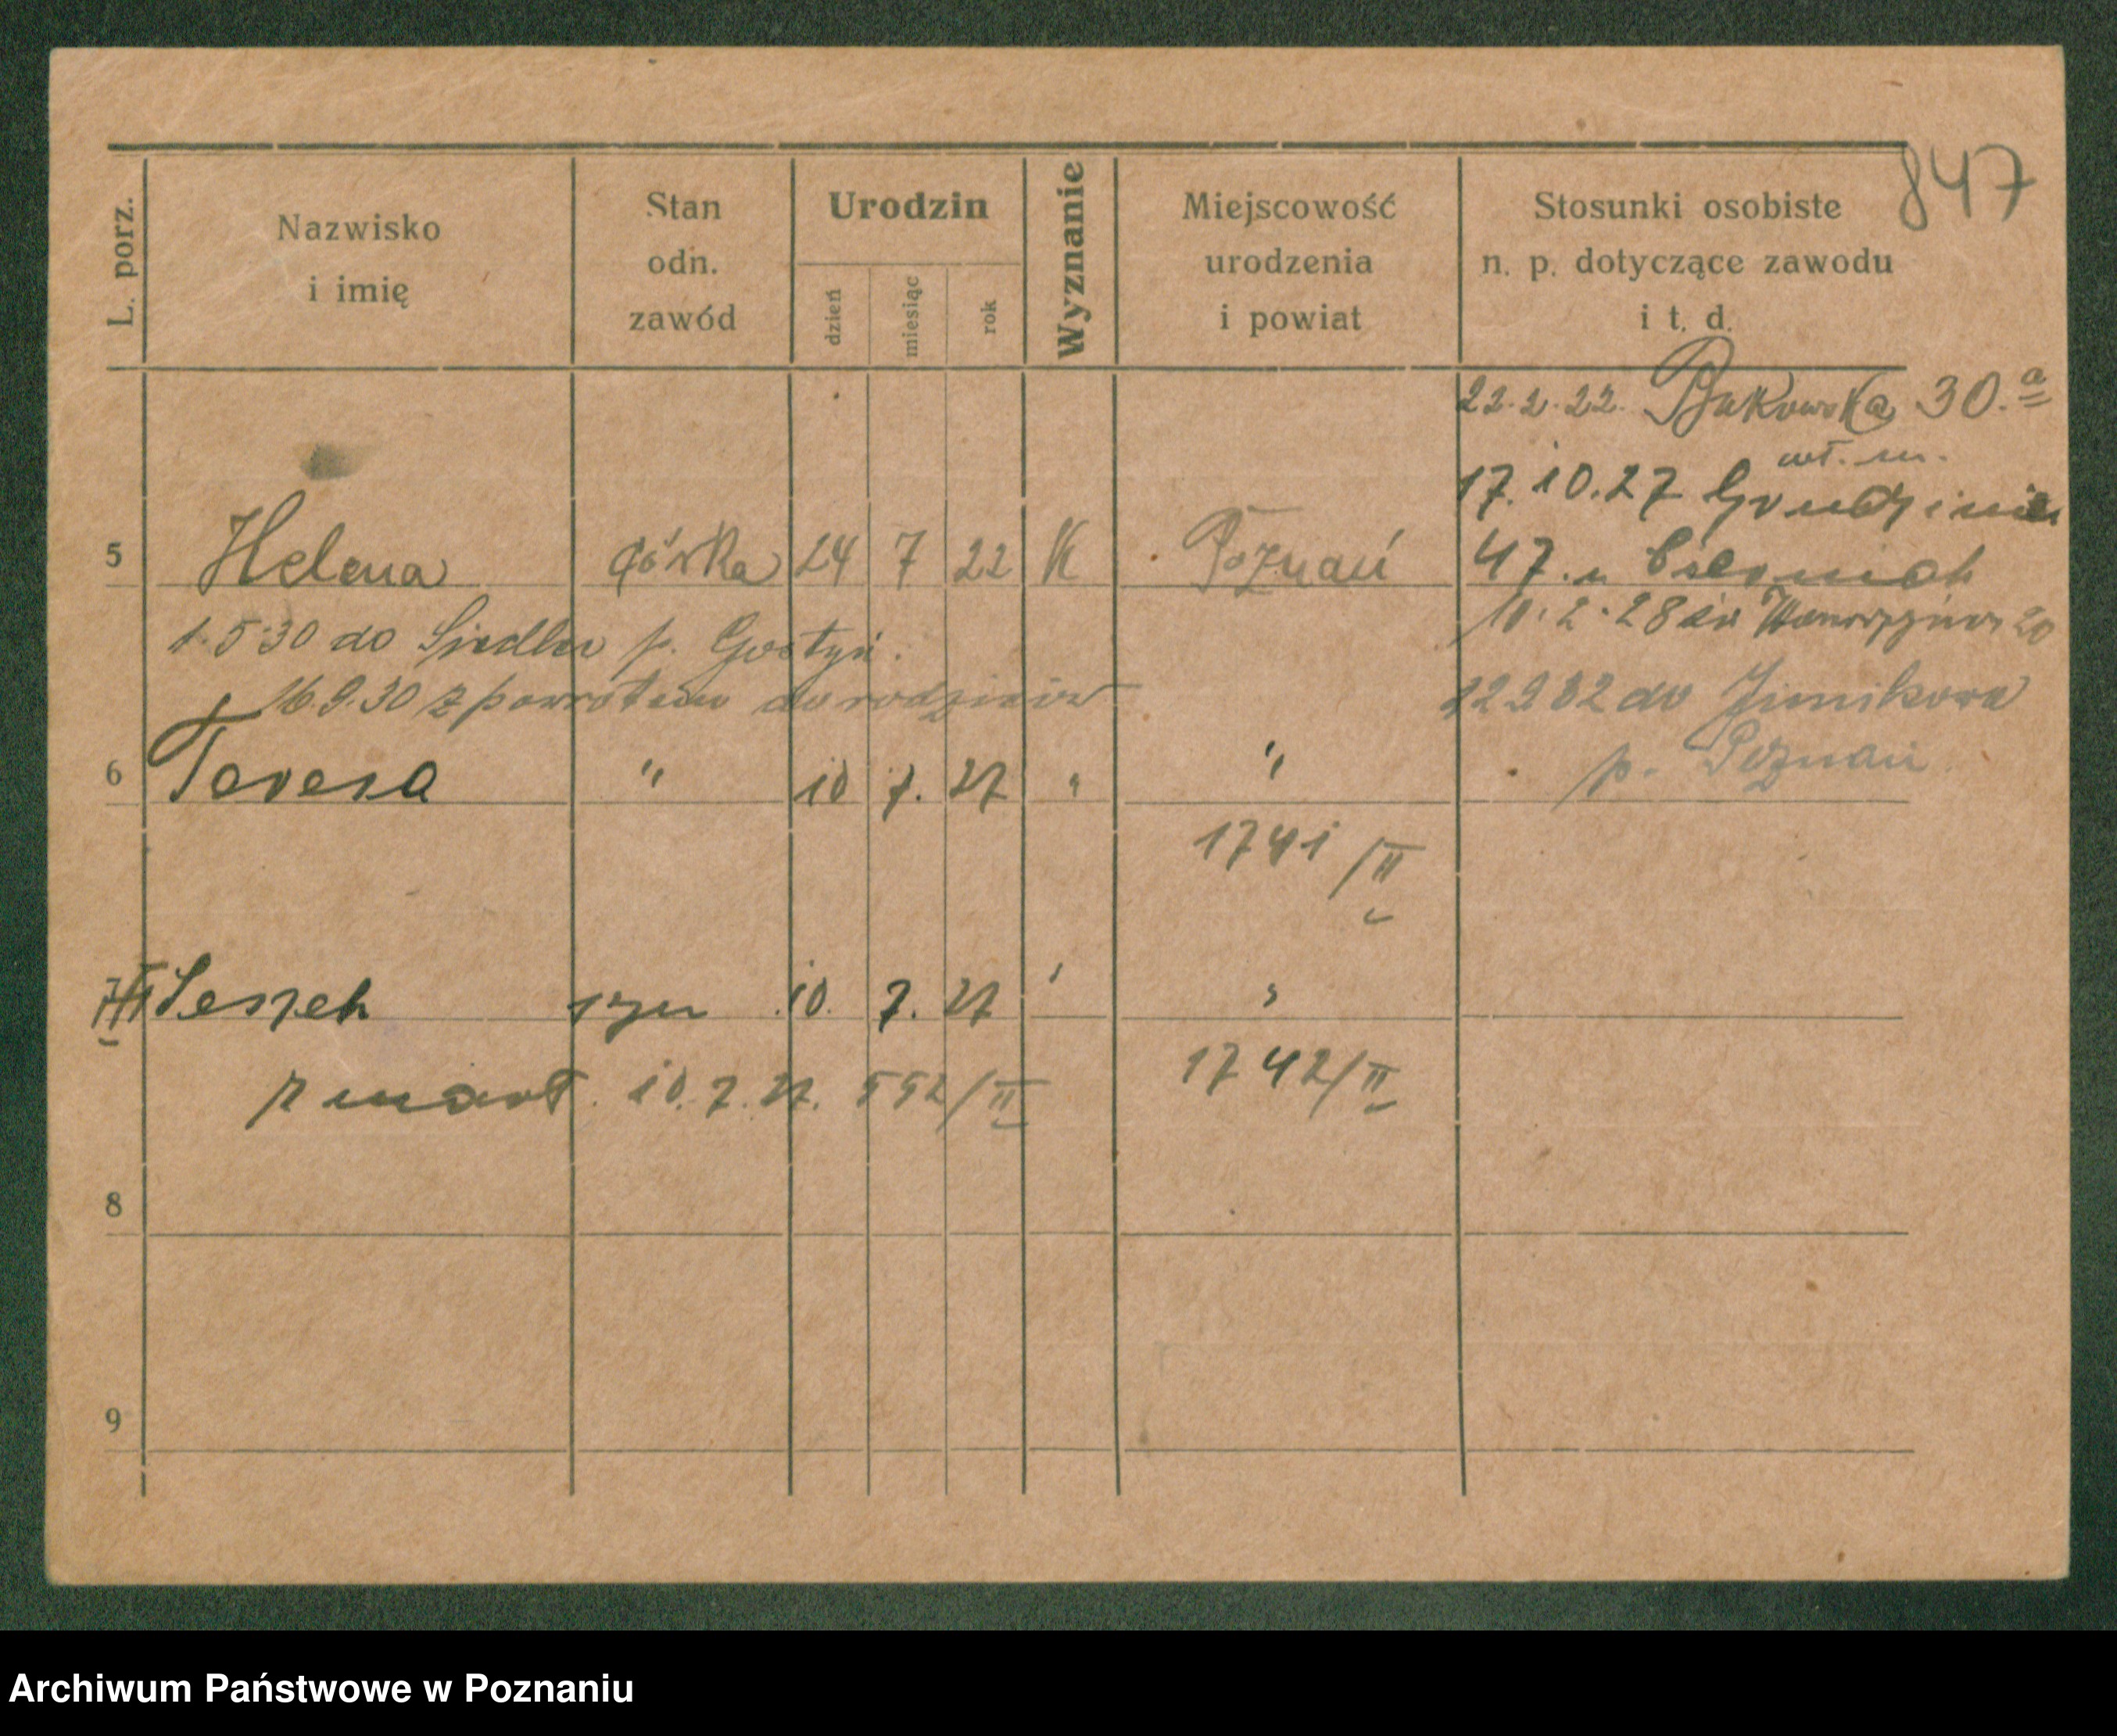 847
L. porz.
Nazwisko i imię
Stan odn. zawód
Urodzin
dzień miesiąc rok
Wyznanie
Miejscowość urodzenia i powiat
Stosunki osobiste n. p. dotyczące zawodu i t. d.
22.2.22. Bukowska 30.a
wł. m.
17.10.27 Grudzieniec
5 Helena córka 24 7 22 K Poznań 47. u
1.5.30 do Siedlec p. Gostyń.
10.2.28 św Wawrzyńca 20
16.9.30 z powrotem do rodziców
22.9.32 do Junikowa
p. Poznań
6 Teresa " 10 7. 27 " "
1741/II
7 Leszek syn 10. 7. 27 " "
zmarł. 10.7.27. 592/II
1742/II
8
9
Archiwum Państwowe w Poznaniu